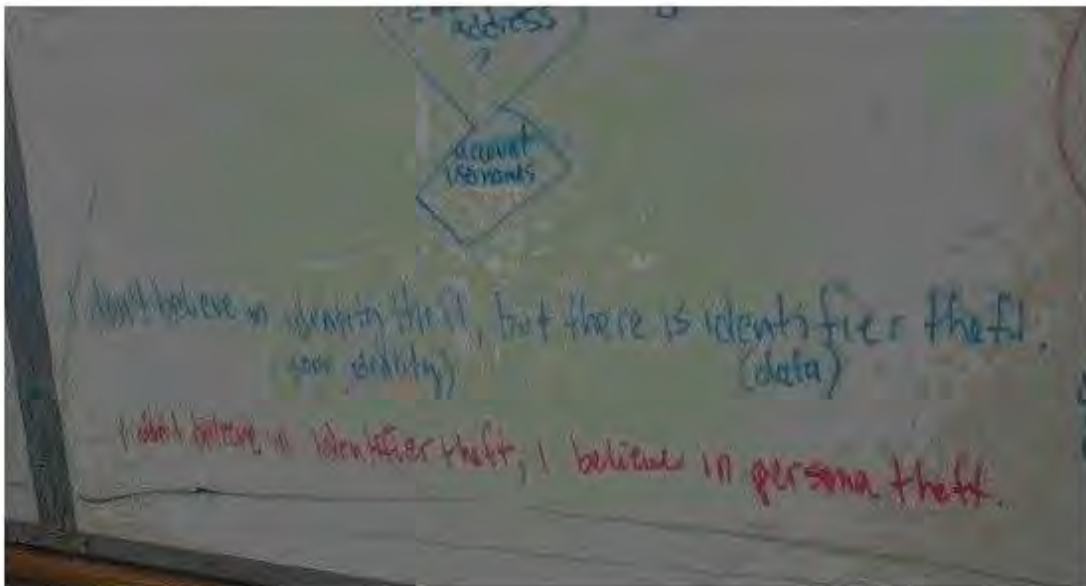 address
?
account
I don't believe in identity theft, but there is identifier theft.
(your identity)
(data)
I don't believe in identifier theft, I believe in persona theft.